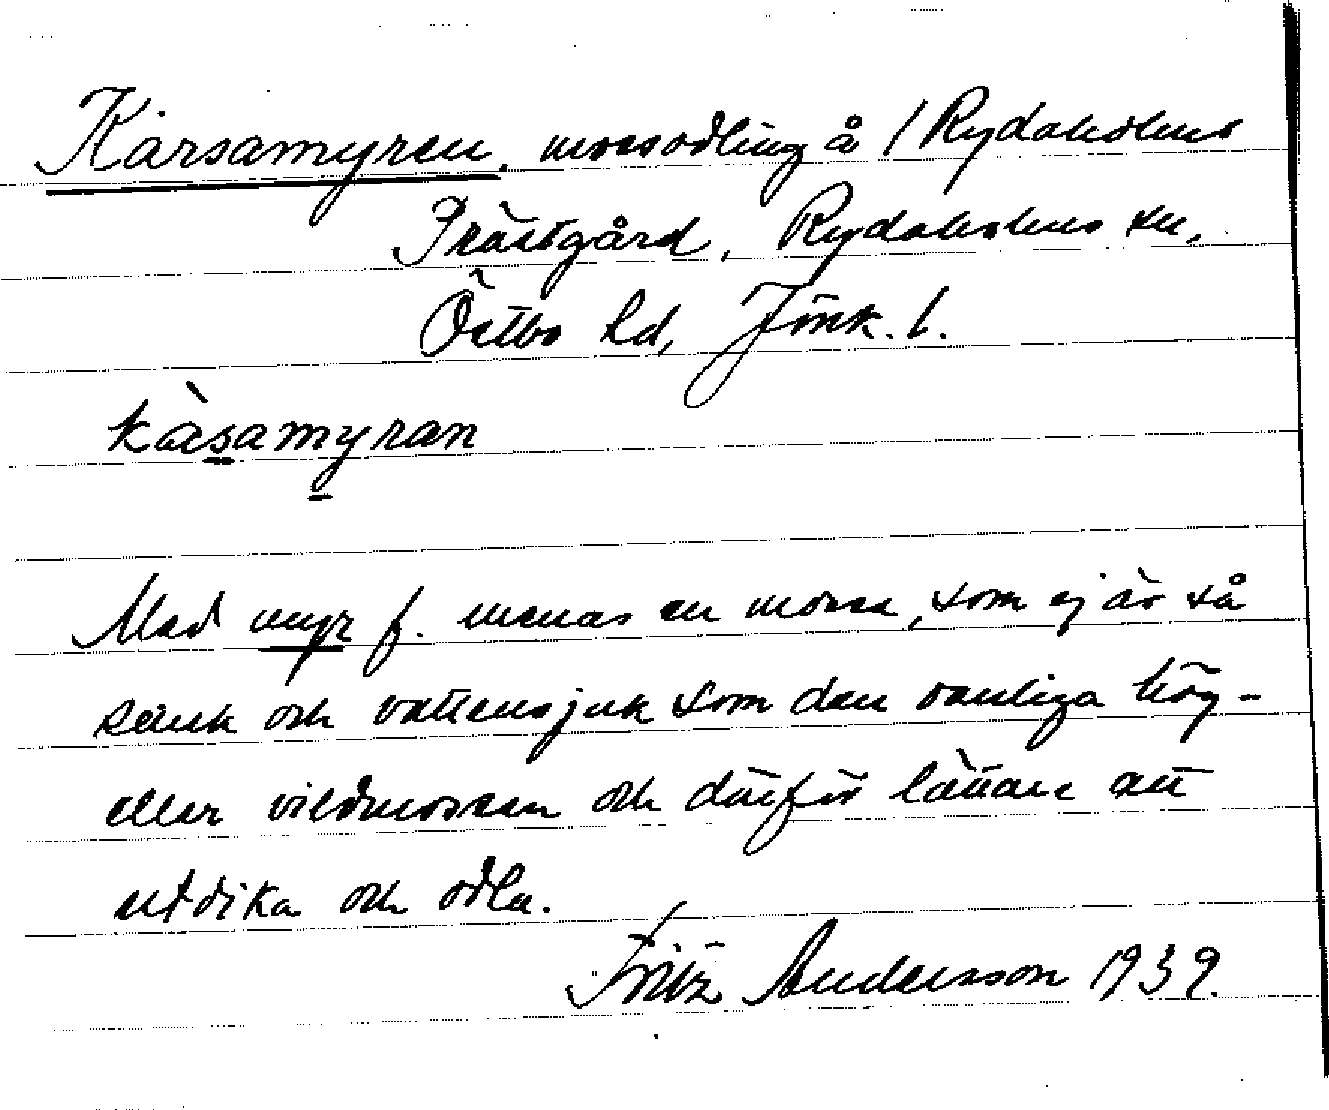 Karsamyren, mossodling å 1 Rydaholms
Prästgård, Rydaholms sn,
Östbo hd, Jönk. l.
kàsamyran
Med myr f. menas en mosse, som ej är så
sank och vattensjuk som den vanliga hög-
eller vildmossen och därför lättare att
utdika och odla.
Fritz Andersson 1939.